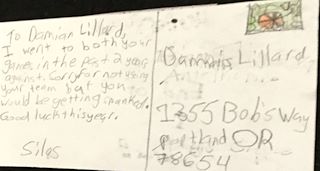 To Damian Lillard,
I went to both your
games in the past 2 years
against. Sorry for not using
your team but you
would be getting spanked.
Good luck this year.
Silas
Dammis Lillard
1355 Bob's Way
Portland OR
78654